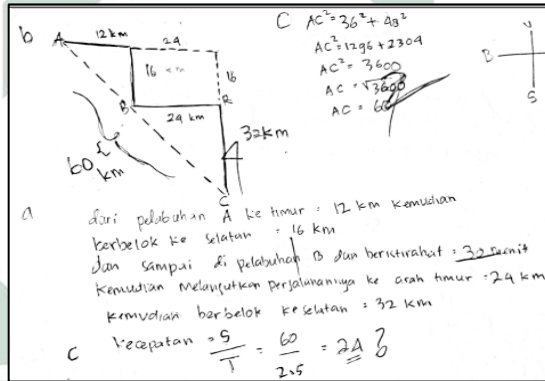 b
A
12 km
24
16 cm
16
B
R
24 km
32 km
60 km
C
C AC² = 36² + 48²
AC² = 1296 + 2304
AC² = 3600
AC = √3600
AC = 60
U
B
S
a dari pelabuhan A ke timur : 12 km kemudian
berbelok ke selatan : 16 km
dan sampai di pelabuhan B dan beristirahat : 30 menit
kemudian melanjutkan perjalanannya ke arah timur : 24 km
kemudian berbelok ke selatan : 32 km
C kecepatan = S/T = 60/2.5 = 24